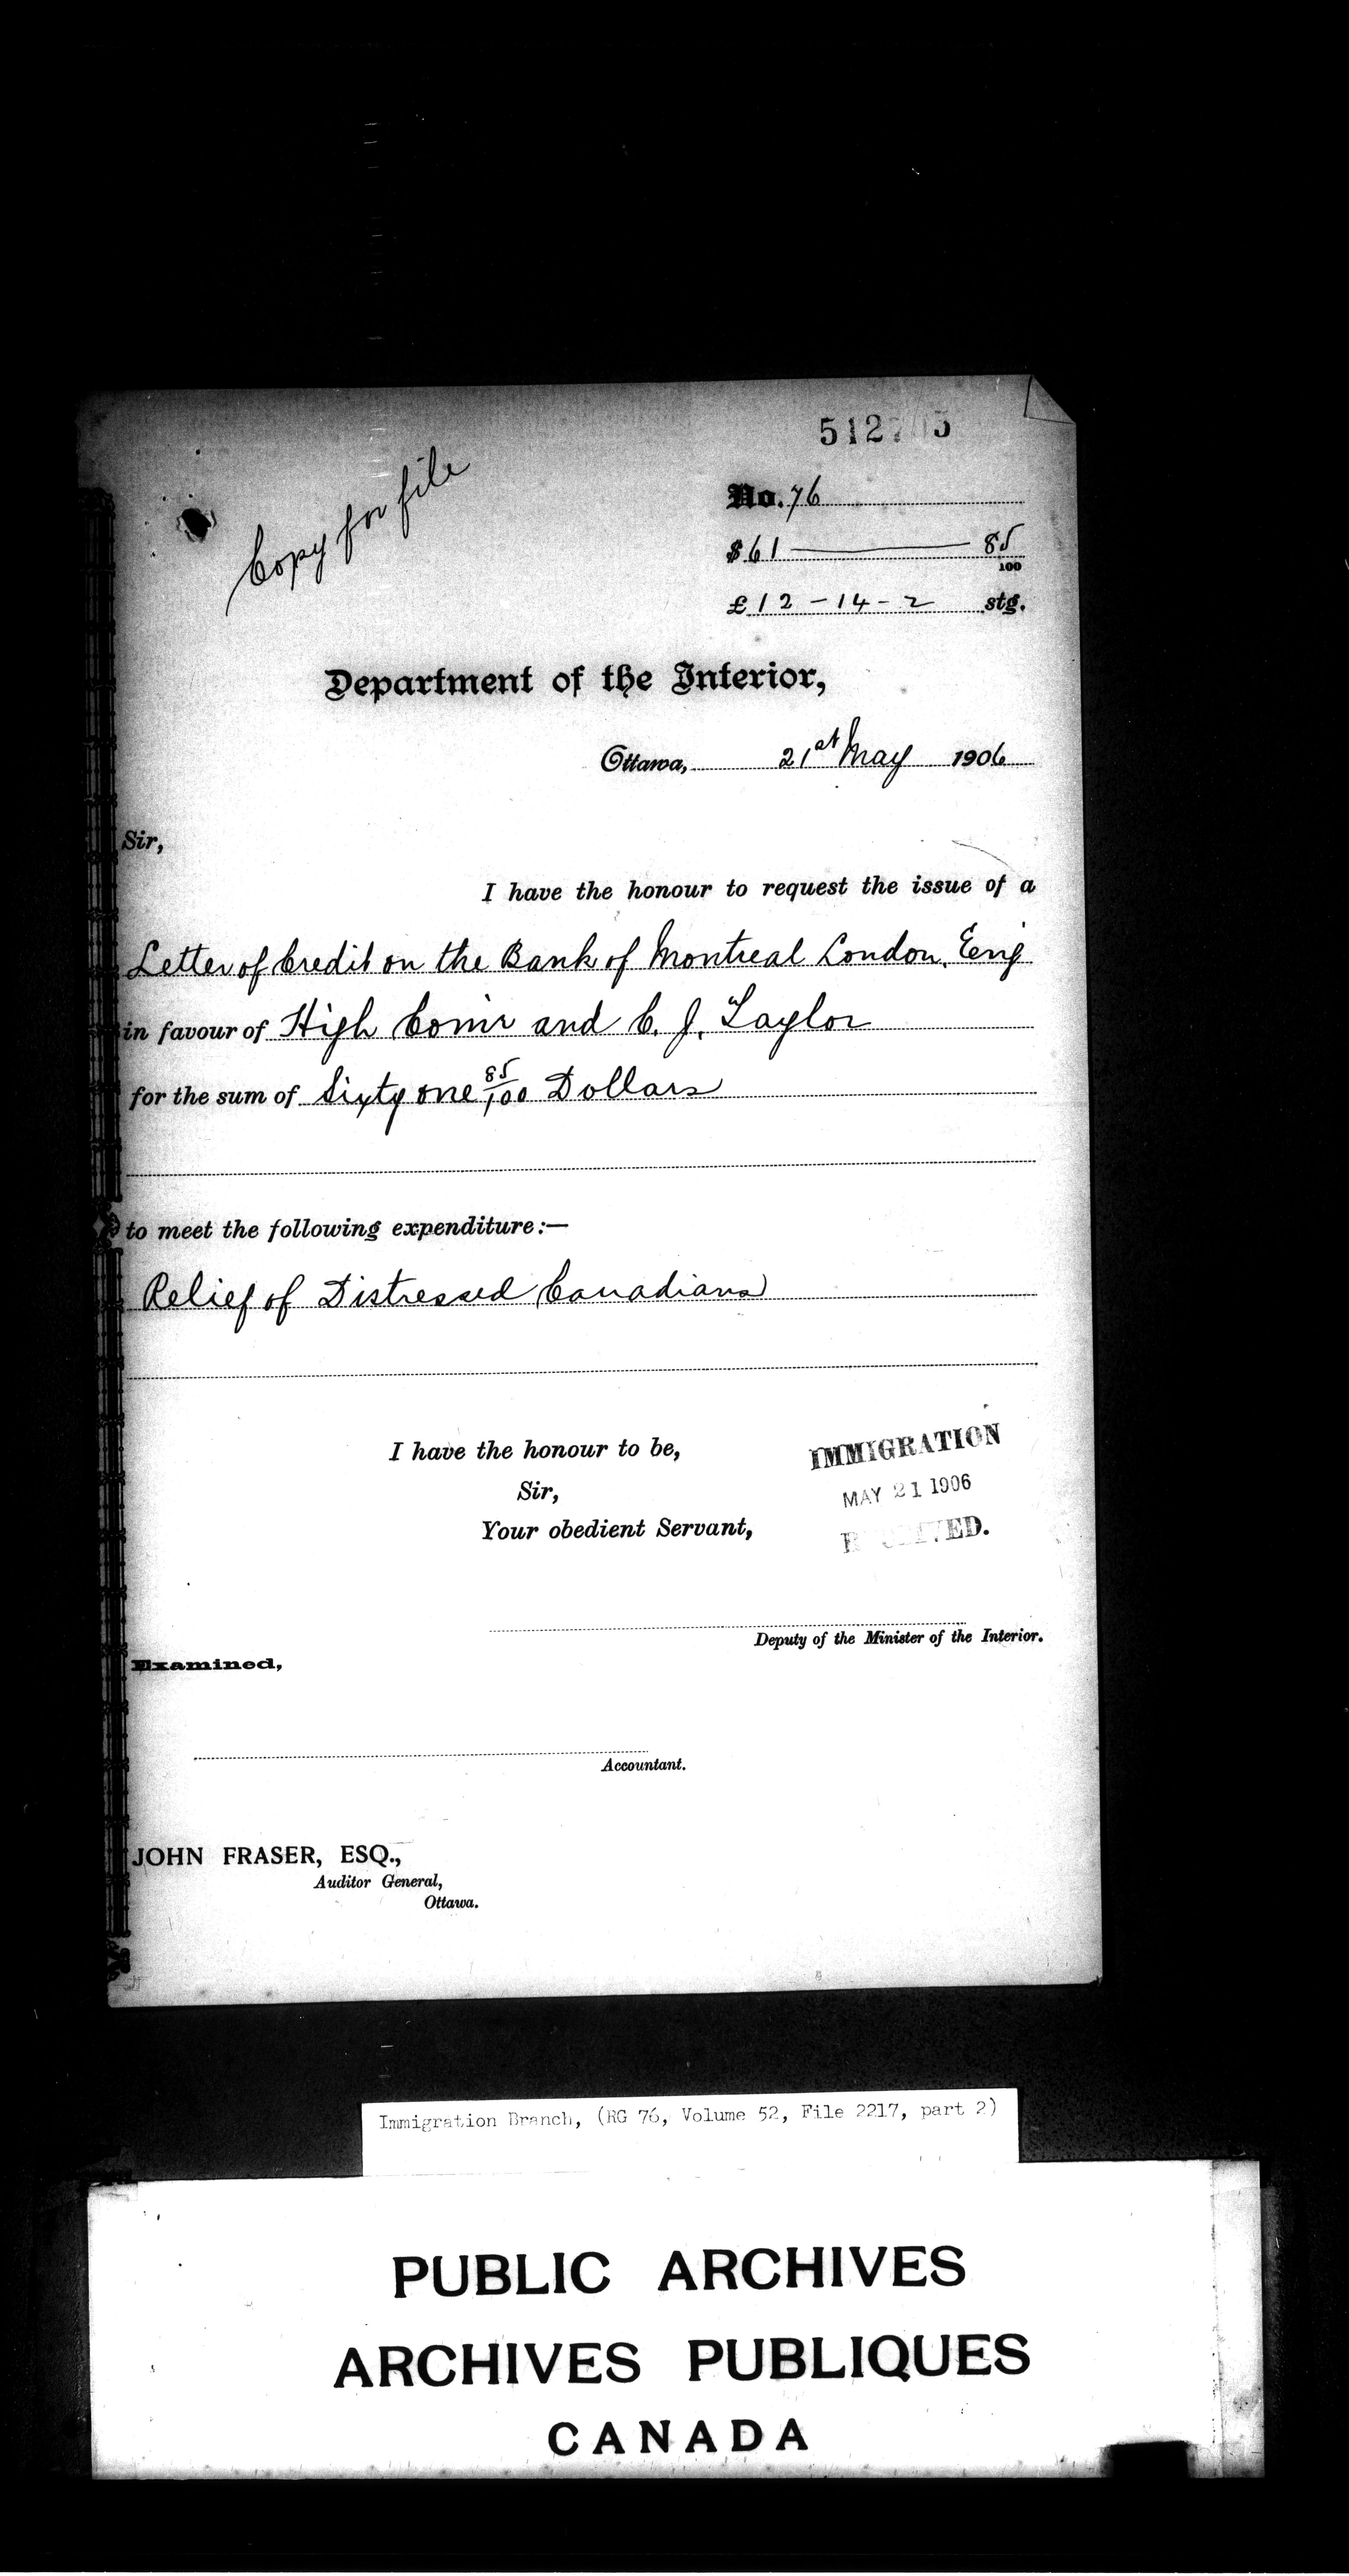 Copy for file
No. 76
$61 85
100
£12-14-2 stg.
Department of the Interior,
Ottawa, 21st May 1906
Sir,
I have the honour to request the issue of a
Letter of Credit on the Bank of Montreal London, Eng
in favour of High Comr and C. J. Taylor
for the sum of Sixty one 85/100 Dollars
to meet the following expenditure:—
Relief of Distressed Canadians
I have the honour to be,
Sir,
Your obedient Servant,
IMMIGRATION
MAY 21 1906
RECEIVED.
Deputy of the Minister of the Interior.
Examined,
Accountant.
JOHN FRASER, ESQ.,
Auditor General,
Ottawa.
Immigration Branch, (RG 76, Volume 52, File 2217, part 2)
PUBLIC ARCHIVES
ARCHIVES PUBLIQUES
CANADA